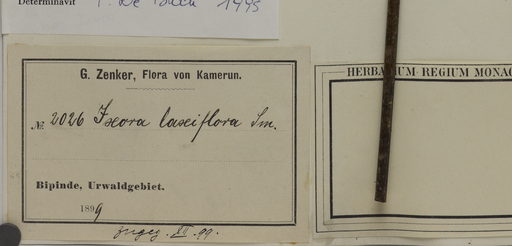 Determinavit P. De Block 1995
G. Zenker, Flora von Kamerun.
№ 2026 Ixora laxiflora Sm.
Bipinde, Urwaldgebiet.
1899
HERBARIUM REGIUM MONAC